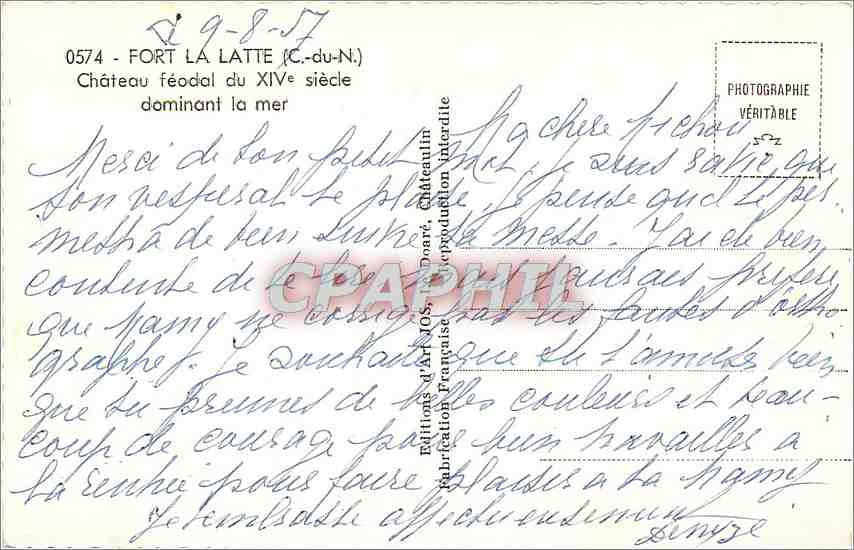 Le 9-8-57
0574 - FORT LA LATTE (C.-du-N.)
Château féodal du XIVe siècle
dominant la mer
PHOTOGRAPHIE
VÉRITABLE
Editions d'Art JOS, Le Doaré, Châteaulin
Fabrication Française - Reproduction interdite
CPARHIL
Ma chère Michou
Merci de ton petit mot, je suis ravie que
ton vesperal te plaise, je pense qu'il te per-
mettra de bien suivre ta messe. J'ai été bien
contente de te lire mais j'aurais préféré
que Mamy ne corrige pas les fautes d'ortho
graphe. Je souhaite que tu t'amuses bien
que tu prennes de belles couleurs et beau-
coup de courage pour bien travailler à
la rentrée pour faire plaisir à ta Mamy
Je t'embrasse affectueusement
Denyse